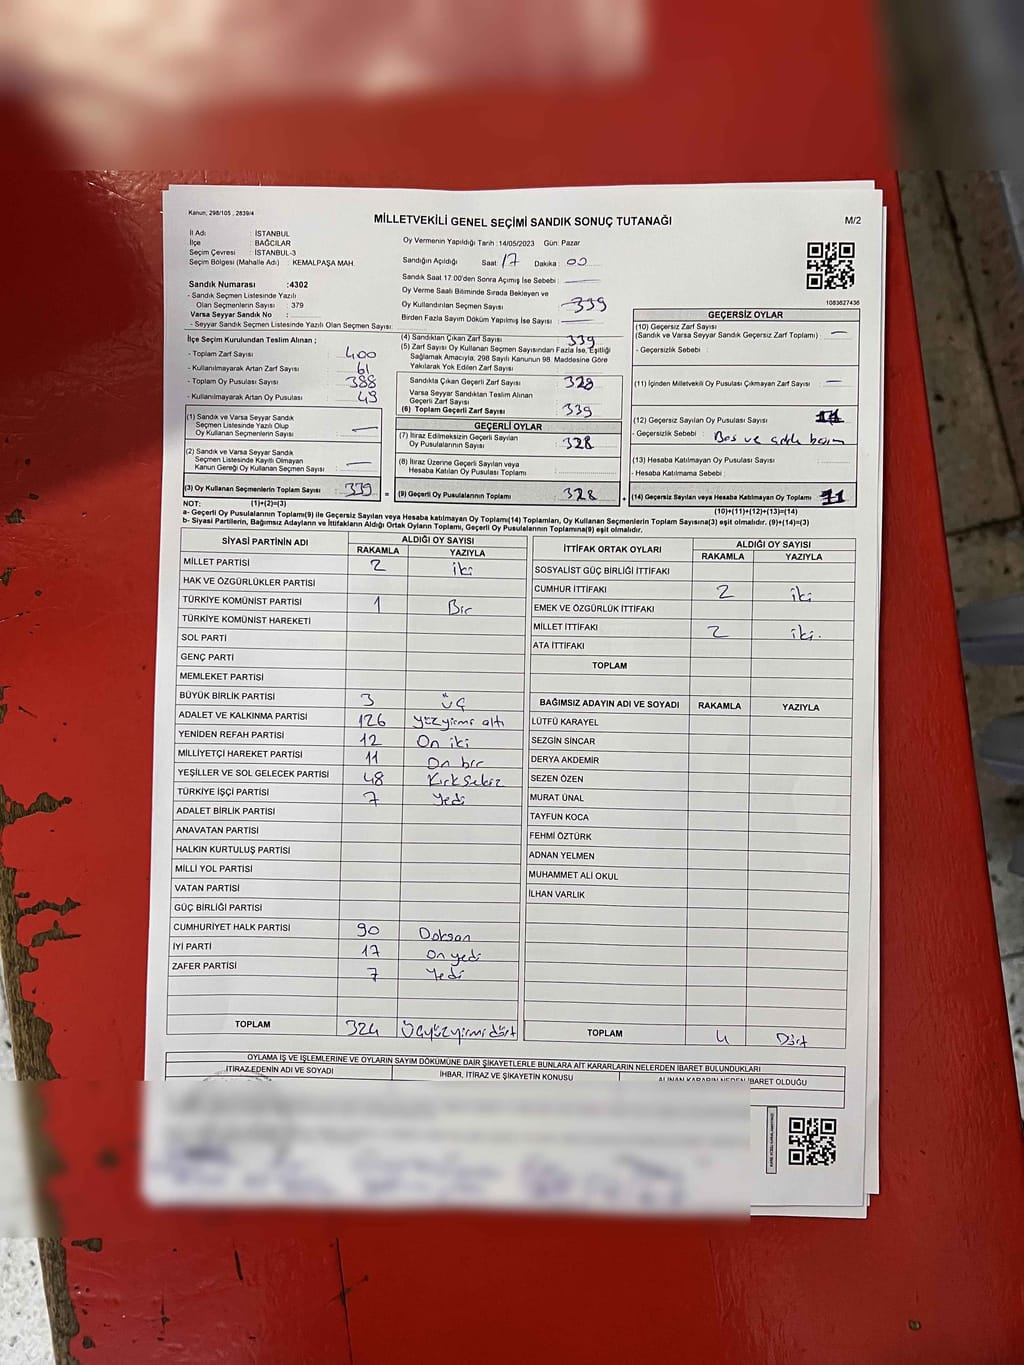 Kanun, 298/105 , 2839/4
MİLLETVEKİLİ GENEL SEÇİMİ SANDIK SONUÇ TUTANAĞI
M/2
İl Adı : İSTANBUL
İlçe : BAĞCILAR
Seçim Çevresi : İSTANBUL-3
Seçim Bölgesi (Mahalle Adı) : KEMALPAŞA MAH.
Sandık Numarası :4302
- Sandık Seçmen Listesinde Yazılı
Olan Seçmenlerin Sayısı : 379
Varsa Seyyar Sandık No :
- Seyyar Sandık Seçmen Listesinde Yazılı Olan Seçmen Sayısı:
Oy Vermenin Yapıldığı Tarih : 14/05/2023 Gün: Pazar
Sandığın Açıldığı Saat: 17 Dakika : 00
Sandık Saat 17:00'den Sonra Açılmış İse Sebebi :
Oy Verme Saati Bitiminde Sırada Bekleyen ve
Oy Kullandırılan Seçmen Sayısı : 339
Birden Fazla Sayım Döküm Yapılmış İse Sayısı :
1083627436
İlçe Seçim Kurulundan Teslim Alınan ;
- Toplam Zarf Sayısı : 400
- Kullanılmayarak Artan Zarf Sayısı : 61
- Toplam Oy Pusulası Sayısı : 388
- Kullanılmayarak Artan Oy Pusulası : 49
(1) Sandık ve Varsa Seyyar Sandık
Seçmen Listesinde Yazılı Olup
Oy Kullanan Seçmenlerin Sayısı :
(2) Sandık ve Varsa Seyyar Sandık
Seçmen Listesinde Kayıtlı Olmayan
Kanun Gereği Oy Kullanan Seçmen Sayısı :
(3) Oy Kullanan Seçmenlerin Toplam Sayısı : 339
(1)+(2)=(3)
(4) Sandıktan Çıkan Zarf Sayısı : 339
(5) Zarf Sayısı Oy Kullanan Seçmen Sayısından Fazla İse, Eşitliği
Sağlamak Amacıyla; 298 Sayılı Kanunun 98. Maddesine Göre
Yakılarak Yok Edilen Zarf Sayısı :
Sandıkta Çıkan Geçerli Zarf Sayısı : 328
Varsa Seyyar Sandıktan Teslim Alınan
Geçerli Zarf Sayısı
(6) Toplam Geçerli Zarf Sayısı : 339
GEÇERLİ OYLAR
(7) İtiraz Edilmeksizin Geçerli Sayılan
Oy Pusulalarının Sayısı : 328
(8) İtiraz Üzerine Geçerli Sayılan veya
Hesaba Katılan Oy Pusulası Toplamı :
= (9) Geçerli Oy Pusulalarının Toplamı : 328
GEÇERSİZ OYLAR
(10) Geçersiz Zarf Sayısı
(Sandık ve Varsa Seyyar Sandık Geçersiz Zarf Toplamı) :
- Geçersizlik Sebebi :
(11) İçinden Milletvekili Oy Pusulası Çıkmayan Zarf Sayısı :
(12) Geçersiz Sayılan Oy Pusulası Sayısı : 11
- Geçersizlik Sebebi : Boş ve
(13) Hesaba Katılmayan Oy Pusulası Sayısı :
- Hesaba Katılmama Sebebi :
(14) Geçersiz Sayılan veya Hesaba Katılmayan Oy Toplamı : 11
(10)+(11)+(12)+(13)=(14)
NOT:
a- Geçerli Oy Pusulalarının Toplamı(9) ile Geçersiz Sayılan veya Hesaba katılmayan Oy Toplamı(14) Toplamları, Oy Kullanan Seçmenlerin Toplam Sayısına(3) eşit olmalıdır. (9)+(14)=(3)
b- Siyasi Partilerin, Bağımsız Adayların ve İttifakların Aldığı Ortak Oyların Toplamı, Geçerli Oy Pusulalarının Toplamına(9) eşit olmalıdır.
SİYASİ PARTİNİN ADI ALDIĞI OY SAYISI
RAKAMLA YAZIYLA
MİLLET PARTİSİ 2 iki
HAK VE ÖZGÜRLÜKLER PARTİSİ
TÜRKİYE KOMÜNİST PARTİSİ 1 Bir
TÜRKİYE KOMÜNİST HAREKETİ
SOL PARTİ
GENÇ PARTİ
MEMLEKET PARTİSİ
BÜYÜK BİRLİK PARTİSİ 3 üç
ADALET VE KALKINMA PARTİSİ 126 yüzyirmi altı
YENİDEN REFAH PARTİSİ 12 On iki
MİLLİYETÇİ HAREKET PARTİSİ 11 On bir
YEŞİLLER VE SOL GELECEK PARTİSİ 48 Kırksekiz
TÜRKİYE İŞÇİ PARTİSİ 7 Yedi
ADALET BİRLİK PARTİSİ
ANAVATAN PARTİSİ
HALKIN KURTULUŞ PARTİSİ
MİLLİ YOL PARTİSİ
VATAN PARTİSİ
GÜÇ BİRLİĞİ PARTİSİ
CUMHURİYET HALK PARTİSİ 90 Doksan
İYİ PARTİ 17 On yedi
ZAFER PARTİSİ 7 Yedi
TOPLAM 324 Üçyüzyirmidört
İTTİFAK ORTAK OYLARI ALDIĞI OY SAYISI
RAKAMLA YAZIYLA
SOSYALİST GÜÇ BİRLİĞİ İTTİFAKI
CUMHUR İTTİFAKI 2 iki
EMEK VE ÖZGÜRLÜK İTTİFAKI
MİLLET İTTİFAKI 2 iki.
ATA İTTİFAKI
TOPLAM
BAĞIMSIZ ADAYIN ADI VE SOYADI RAKAMLA YAZIYLA
LÜTFÜ KARAYEL
SEZGİN SİNCAR
DERYA AKDEMİR
SEZEN ÖZEN
MURAT ÜNAL
TAYFUN KOCA
FEHMİ ÖZTÜRK
ADNAN YELMEN
MUHAMMET ALİ OKUL
İLHAN VARLIK
TOPLAM 4 Dört
OYLAMA İŞ VE İŞLEMLERİNE VE OYLARIN SAYIM DÖKÜMÜNE DAİR ŞİKAYETLERLE BUNLARA AİT KARARLARIN NELERDEN İBARET BULUNDUKLARI
İTİRAZ EDENİN ADI VE SOYADI İHBAR, İTİRAZ VE ŞİKAYETİN KONUSU ALINAN KARARIN NEDEN İBARET OLDUĞU